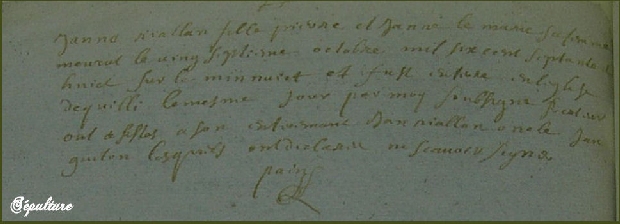 Janne Riallan fille pierre et Janne le marie sa femme
mourut le vingt septiesme octobre mil six cent septante
huict sur le minnuict et fust enterre en leglise
dequilli le mesme Jour par moy soubsigne
ont assistes a son enterrement Jan riallan oncle Jan
guiton lesquels ont declarer ne scauoir signer
pain
Sépulture